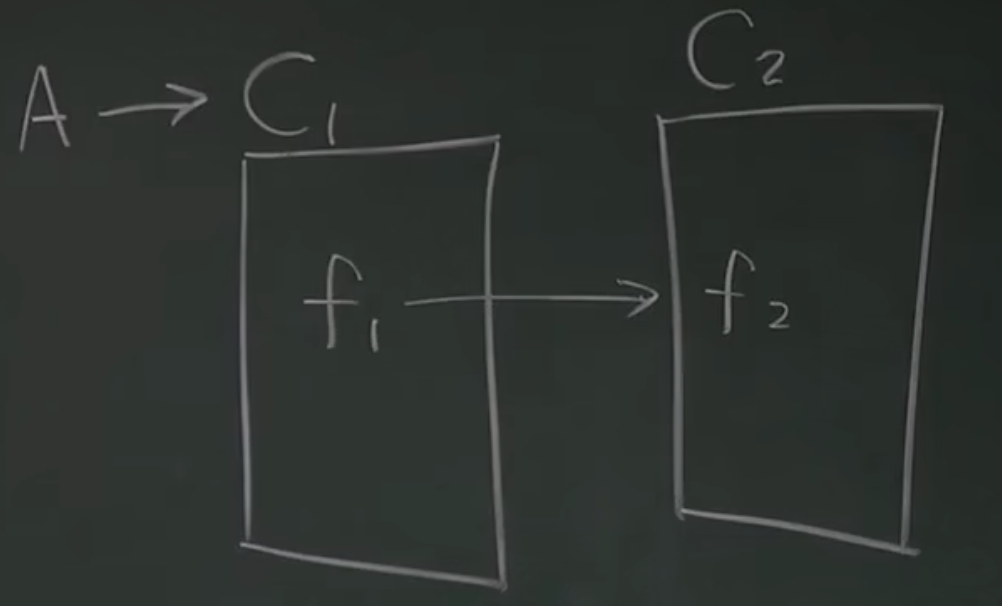 A → C₁
C₂
f₁ → f₂